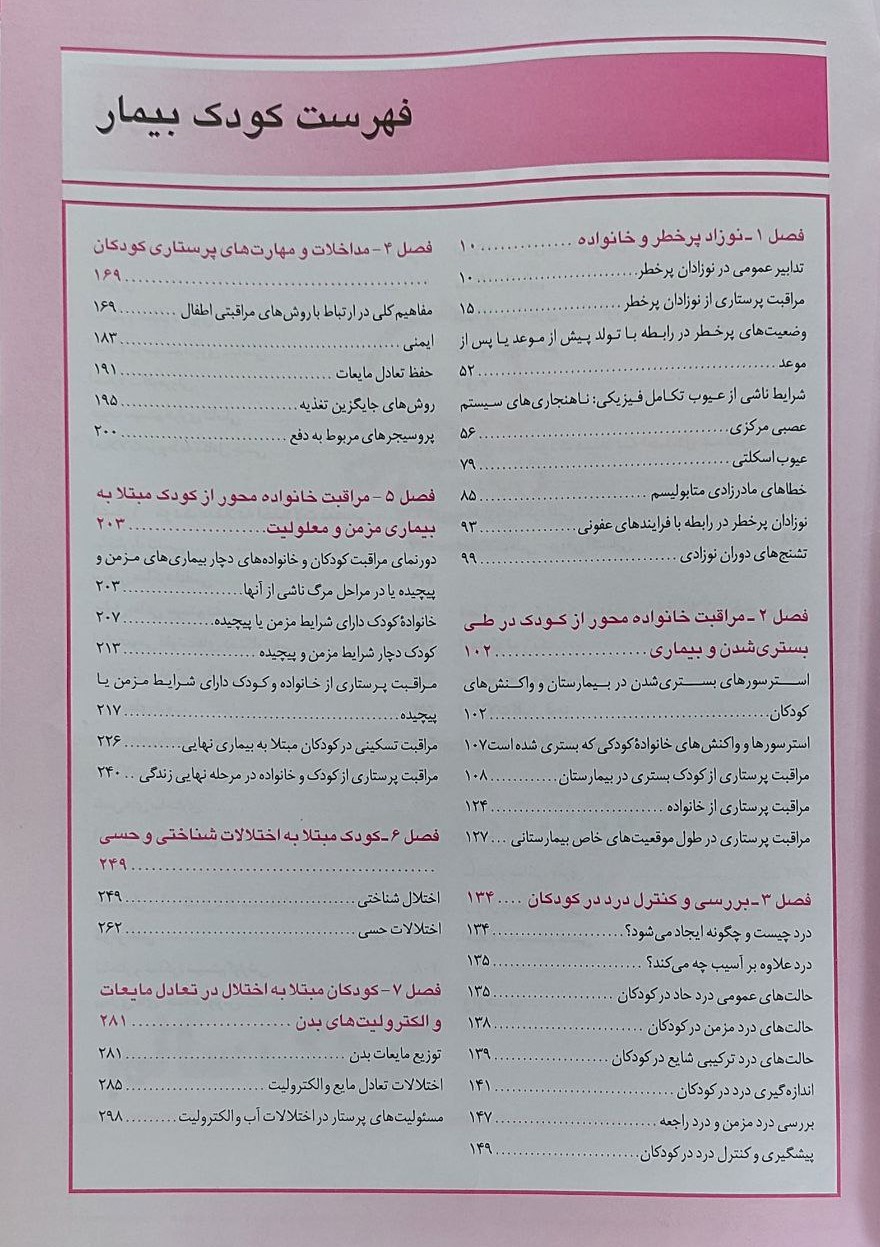 فهرست کودک بیمار
فصل ۱ـ نوزاد پرخطر و خانواده .............. ۱۰
تدابیر عمومی در نوزادان پرخطر....................... ۱۰
مراقبت پرستاری از نوزادان پرخطر ..................... ۱۵
وضعیت‌های پرخطر در رابطه با تولد پیش از موعد یا پس از
موعد ............................................. ۵۲
شرایط ناشی از عیوب تکامل فیزیکی: ناهنجاری‌های سیستم
عصبی مرکزی..................................... ۵۶
عیوب اسکلتی ..................................... ۷۹
خطاهای مادرزادی متابولیسم ......................... ۸۵
نوزادان پرخطر در رابطه با فرایندهای عفونی............... ۹۳
تشنج‌های دوران نوزادی ............................. ۹۹
فصل ۲ ـ مراقبت خانواده محور از کودک در طی
بستری‌شدن و بیماری ...................... ۱۰۲
استرسورهای بستری‌شدن در بیمارستان و واکنش‌های
کودکان........................................... ۱۰۲
استرسورها و واکنش‌های خانوادهٔ کودکی که بستری شده است۱۰۷
مراقبت پرستاری از کودک بستری در بیمارستان ............ ۱۰۸
مراقبت پرستاری از خانواده ......................... ۱۲۴
مراقبت پرستاری در طول موقعیت‌های خاص بیمارستانی ... ۱۲۷
فصل ۳ ـ بررسی و کنترل درد در کودکان .... ۱۳۴
درد چیست و چگونه ایجاد می‌شود؟ ..................... ۱۳۴
درد علاوه بر آسیب چه می‌کند؟ ....................... ۱۳۵
حالت‌های عمومی درد حاد در کودکان .................. ۱۳۵
حالت‌های درد مزمن در کودکان ....................... ۱۳۸
حالت‌های درد ترکیبی شایع در کودکان ................. ۱۳۹
اندازه‌گیری درد در کودکان ........................... ۱۴۱
بررسی درد مزمن و درد راجعه ........................ ۱۴۷
پیشگیری و کنترل درد در کودکان...................... ۱۴۹
فصل ۴ - مداخلات و مهارت‌های پرستاری کودکان
............................................. ۱۶۹
مفاهیم کلی در ارتباط با روش‌های مراقبتی اطفال .......... ۱۶۹
ایمنی ............................................ ۱۸۳
حفظ تعادل مایعات ................................. ۱۹۱
روش‌های جایگزین تغذیه............................. ۱۹۵
پروسیجرهای مربوط به دفع ........................... ۲۰۰
فصل ۵ - مراقبت خانواده محور از کودک مبتلا به
بیماری مزمن و معلولیت................... ۲۰۳
دورنمای مراقبت کودکان و خانواده‌های دچار بیماری‌های مزمن و
پیچیده یا در مراحل مرگ ناشی از آنها..................... ۲۰۳
خانوادهٔ کودک دارای شرایط مزمن یا پیچیده............... ۲۰۷
کودک دچار شرایط مزمن و پیچیده ..................... ۲۱۳
مراقبت پرستاری از خانواده و کودک دارای شرایط مزمن یا
پیچیده............................................ ۲۱۷
مراقبت تسکینی در کودکان مبتلا به بیماری نهایی........... ۲۲۶
مراقبت پرستاری از کودک و خانواده در مرحله نهایی زندگی .. ۲۴۰
فصل ۶ ـ کودک مبتلا به اختلالات شناختی و حسی
............................................. ۲۴۹
اختلال شناختی .................................... ۲۴۹
اختلالات حسی .................................... ۲۶۲
فصل ۷ - کودکان مبتلا به اختلال در تعادل مایعات
و الکترولیت‌های بدن ...................... ۲۸۱
توزیع مایعات بدن .................................. ۲۸۱
اختلالات تعادل مایع و الکترولیت ...................... ۲۸۵
مسئولیت‌های پرستار در اختلالات آب و الکترولیت.......... ۲۹۸